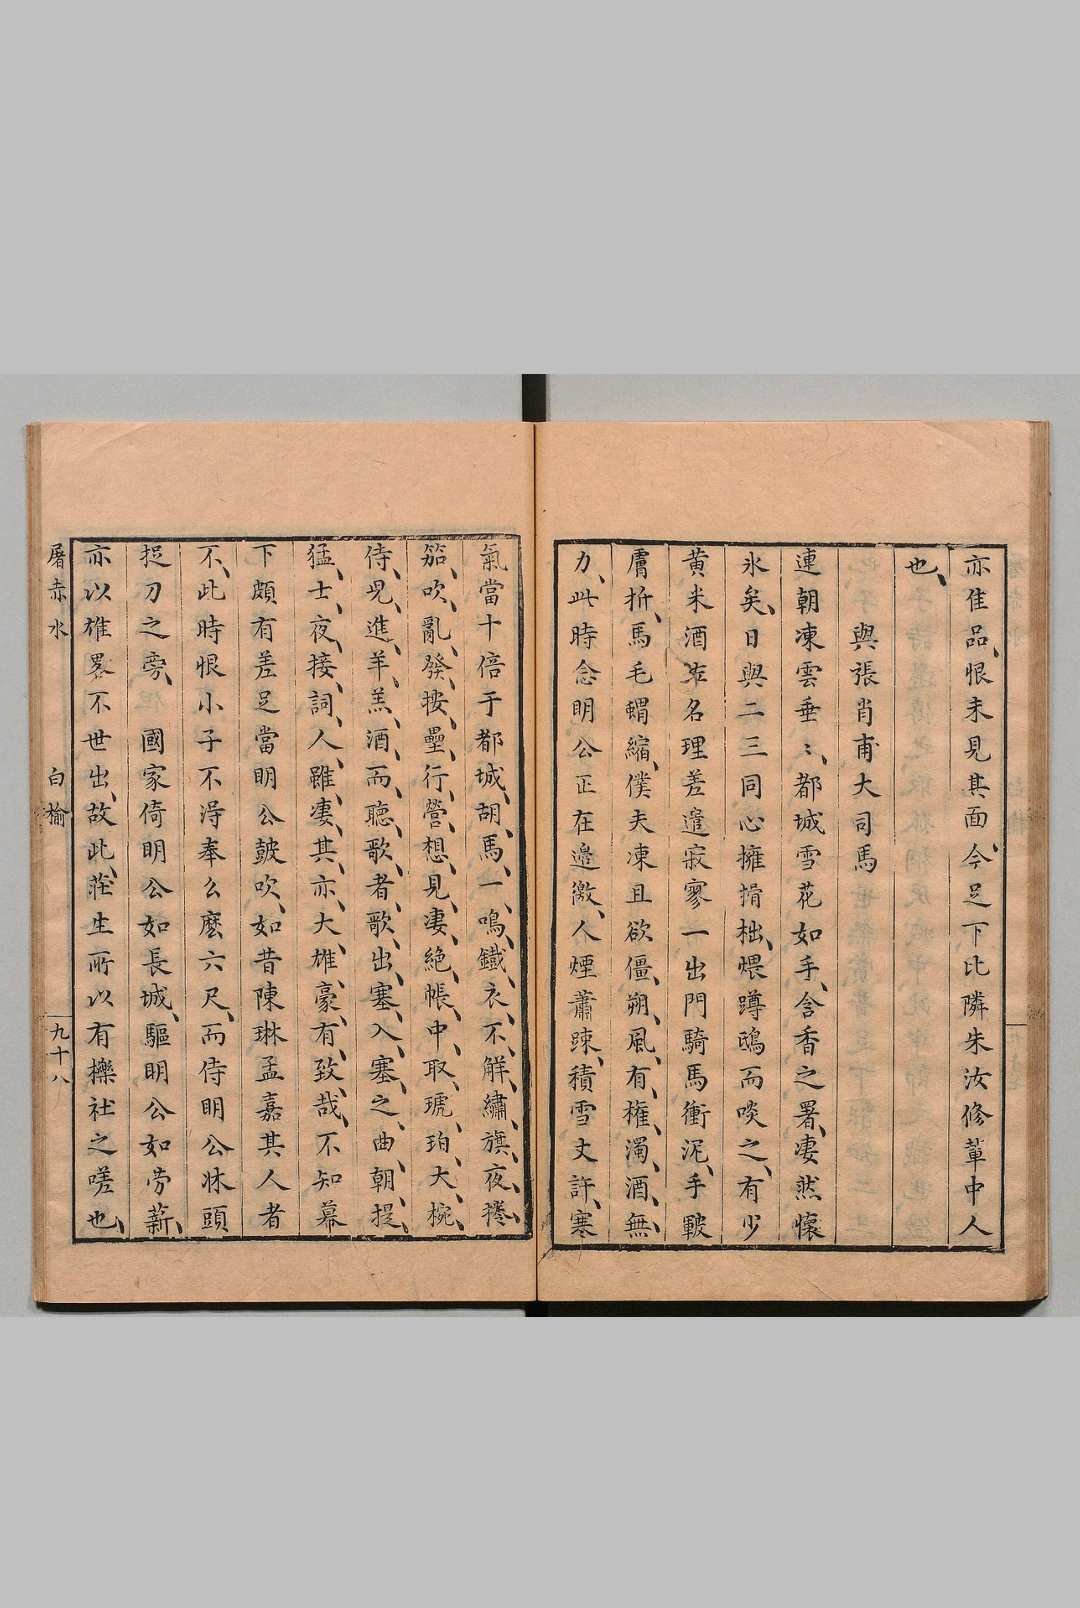 亦佳品、恨未見其面、今足下比隣朱汝修輩中人
也、
與張肖甫大司馬
連朝凍雲垂〻、都城雪花如手、含香之署、凄然懷
氷矣、日與二三同心擁榾柮、煨蹲鴟而啖之、有少
黄米酒㘽名理差遣寂寥一出門騎馬衝泥、手皸
膚折、馬毛蝟縮、僕夫凍且欲僵、朔風有權、濁酒無
力、此時念明公正在邉徼、人煙蕭踈、積雪丈許、寒
氣當十倍于都城、胡馬一鳴、鐵衣不解、繡旗夜捲、
笳吹亂發、按壘行營、想見凄絶、帳中取琥珀大椀、
侍兒進羊羔酒、而聽歌者歌出塞入塞之曲、朝提
猛士、夜接詞人、雖凄其、亦大雄豪有致哉、不知幕
下頗有差足當明公鼓吹、如昔陳琳孟嘉其人者
不、此時恨小子不淂奉么麽六尺、而侍明公牀頭
捉刀之旁、國家倚明公如長城、驅明公如勞薪、
亦以雄畧不世出、故此、莊生所以有櫟社之嗟也、
屠赤水　白榆　九十八